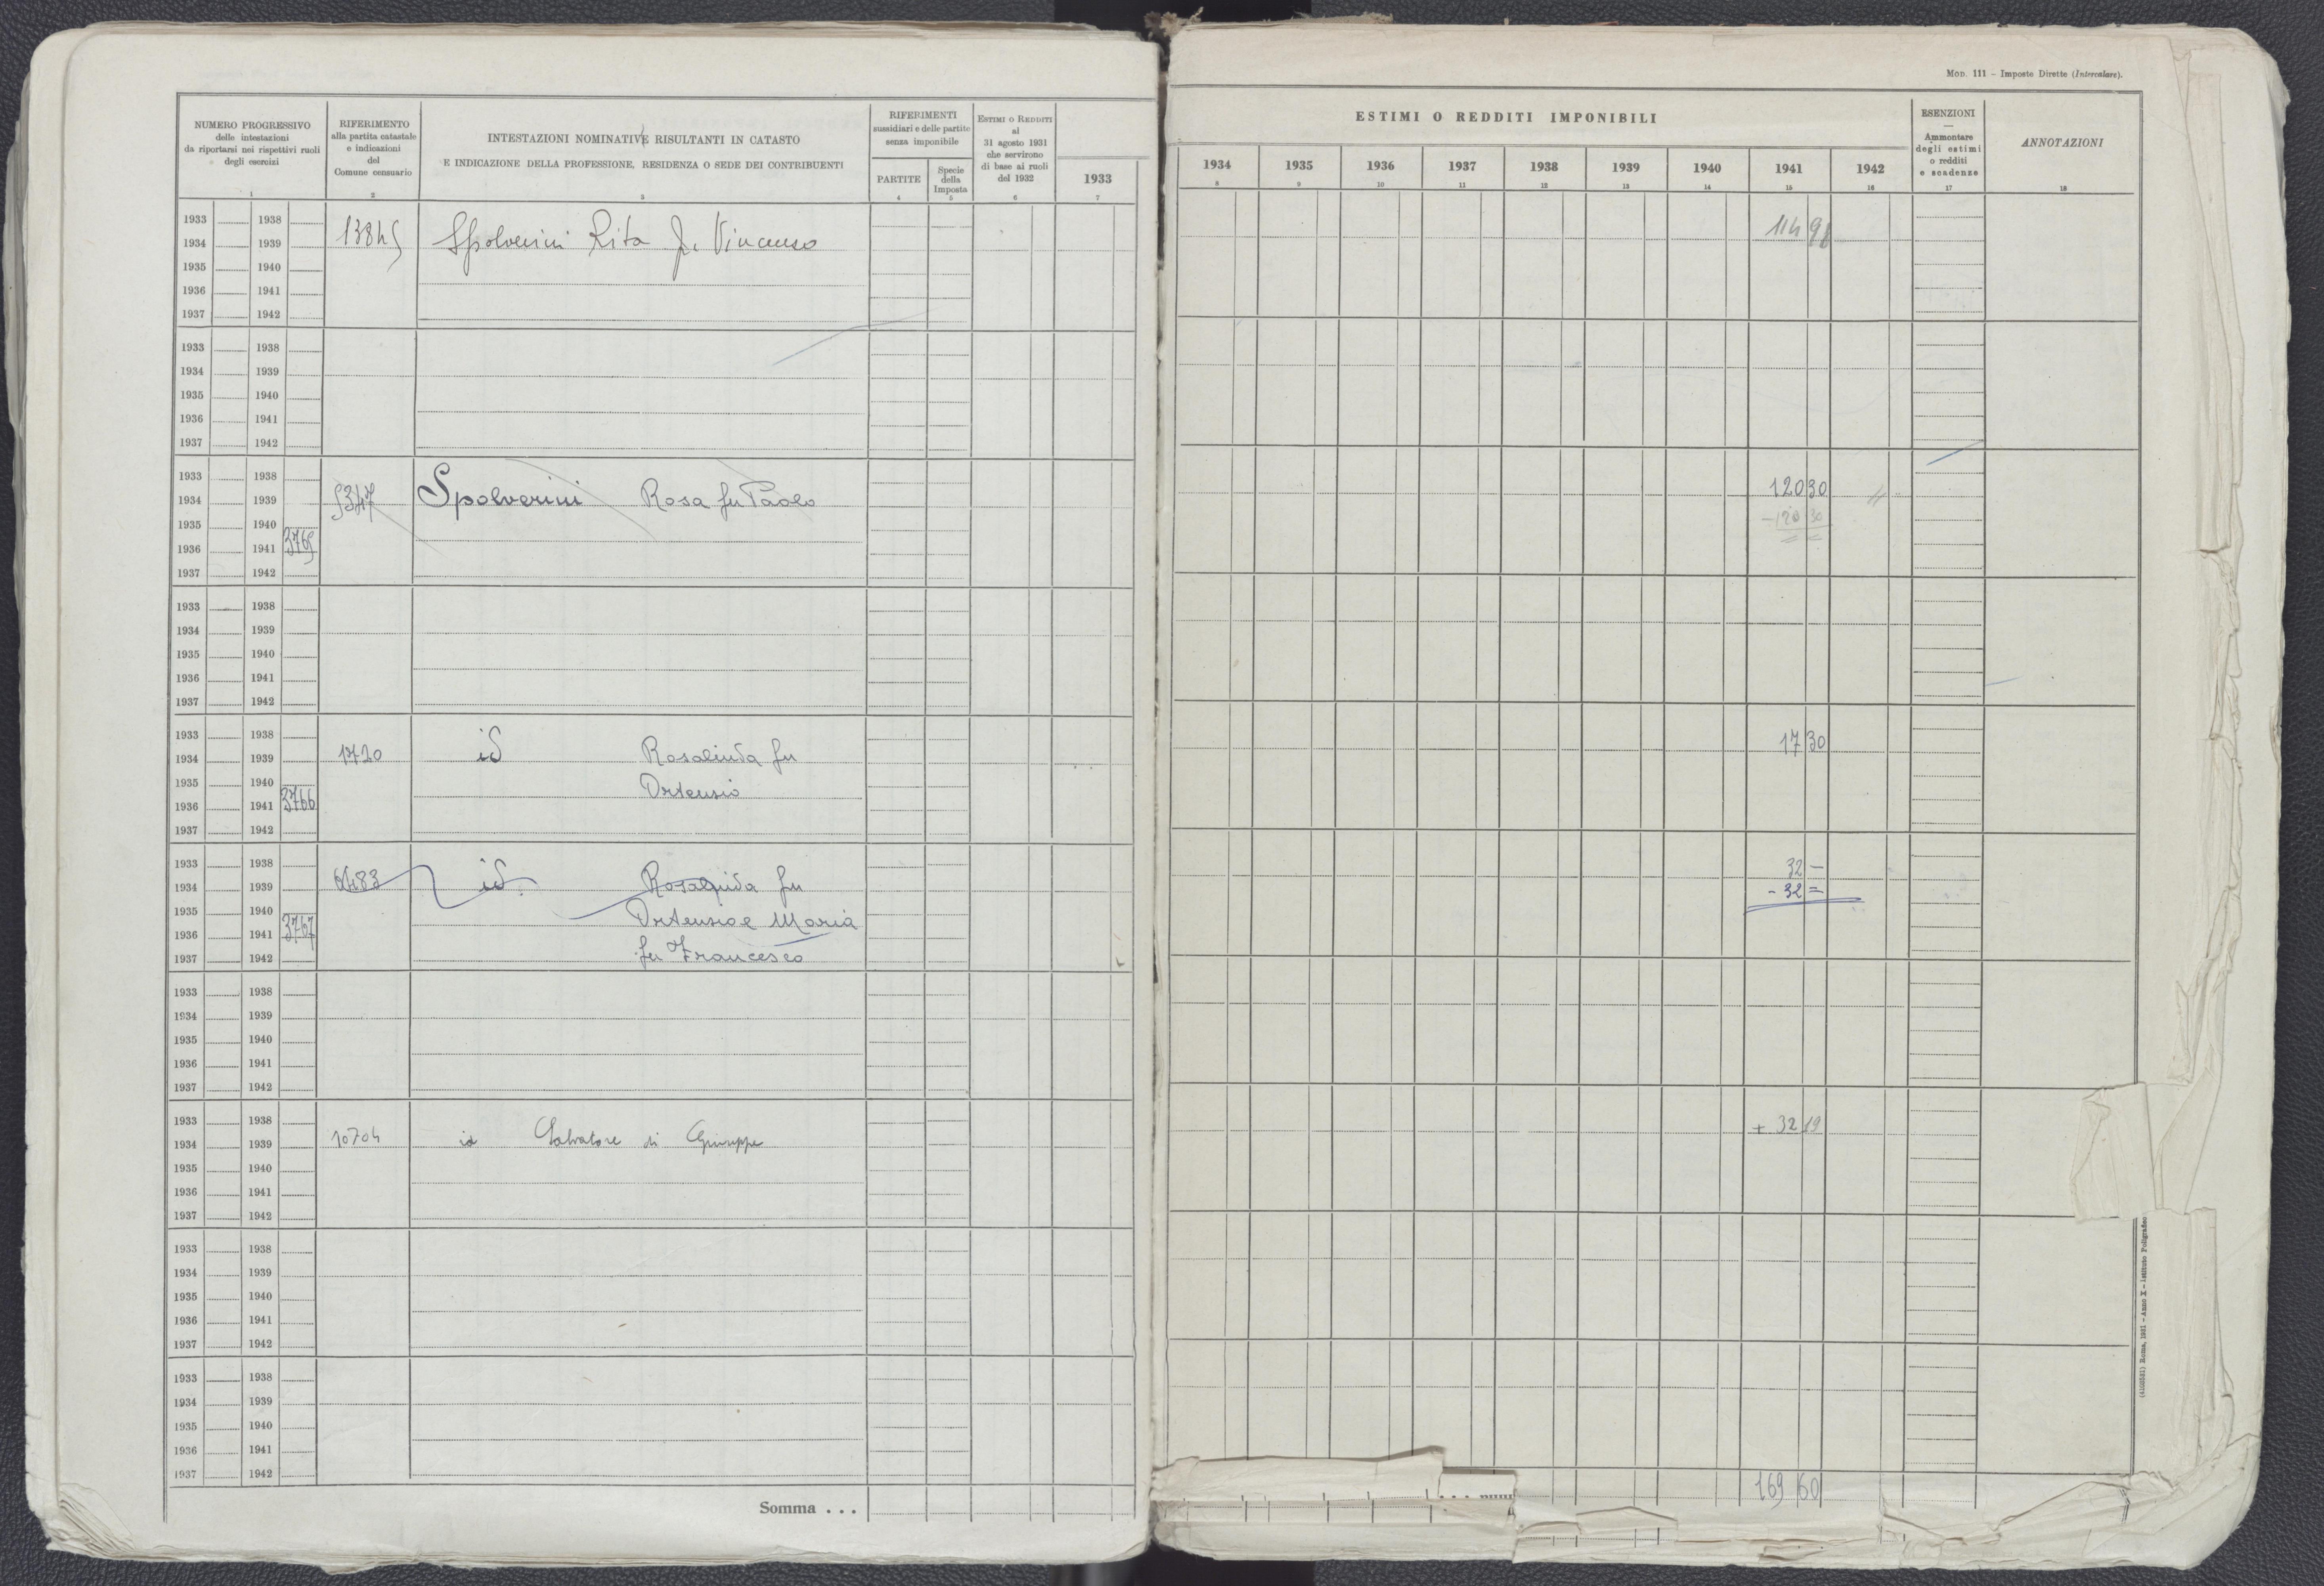 MOD. 111 – Imposte Dirette (Intercalare).
NUMERO PROGRESSIVO
delle intestazioni
da riportarsi nei rispettivi ruoli
degli esercizi
1
RIFERIMENTO
alla partita catastale
e indicazioni
del
Comune censuario
2
INTESTAZIONI NOMINATIVE RISULTANTI IN CATASTO
E INDICAZIONE DELLA PROFESSIONE, RESIDENZA O SEDE DEI CONTRIBUENTI
3
RIFERIMENTI
sussidiari e delle partite
senza imponibile
PARTITE
4
Specie
della
Imposta
5
ESTIMI O REDDITI
al
31 agosto 1931
che servirono
di base ai ruoli
del 1932
6
1933
7
ESTIMI O REDDITI IMPONIBILI
1934 1935 1936 1937 1938 1939 1940 1941 1942
8 9 10 11 12 13 14 15 16
ESENZIONI
—
Ammontare
degli estimi
o redditi
e scadenze
17
ANNOTAZIONI
18
1933 1938
1934 1939 13845 Spolverini Rita fu Vincenzo
1935 1940
1936 1941
1937 1942
1933 1938
1934 1939
1935 1940
1936 1941
1937 1942
1933 1938 120 30
1934 1939 5347 Spolverini Rosa fu Paolo
1935 1940 – 120 30
1936 1941 3765
1937 1942
1933 1938
1934 1939
1935 1940
1936 1941
1937 1942
1933 1938
1934 1939 1720 id Rosalinda fu 17 30
1935 1940 Ortensio
1936 1941 3766
1937 1942
1933 1938 32 –
1934 1939 6483 id. Rosalinda fu - 32 =
1935 1940 Ortensio e Maria
1936 1941 3767
1937 1942 fu Francesco
1933 1938
1934 1939
1935 1940
1936 1941
1937 1942
1933 1938 + 32 19
1934 1939 10704 id Salvatore di Giuseppe
1935 1940
1936 1941
1937 1942
1933 1938
1934 1939
1935 1940
1936 1941
1937 1942
1933 1938
1934 1939
1935 1940
1936 1941
1937 1942
Somma . . . 169 60